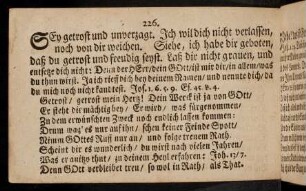 226.
SEy getrost und unverzagt. Ich will dich nicht verlassen,
noch von dir weichen. Siehe, ich habe dir geboten,
daß du getrost und freudig seyst. Laß dir nicht grauen, und
entsetze dich nicht: Denn der HErr, dein GOtt, ist mit dir, in allem, was
du thun wirst. Ja ich rieff dich bey deinem Namen, und nennte dich, da
du mich noch nicht kantest. Jos. 1. 6. 5. 9. Es. 45. v. 4.
Getrost, getrost mein Hertz! Dein Werck ist ja von GOtt,
Er steht dir mächtig bey, Er wirds, was fürgenommen,
Zu dem erwünschten Zweck noch endlich lassen kommen:
Drum wag' es nur auf ihn, schen keiner Feinde Spott,
Nimm GOttes Ruff nur an, und folge treuem Rath,
Scheint dir es wunderlich, du wirst nach vielen Jahren,
Was er anitzt thut, zu deinem Heyl erfahren: Joh. 13, 7.
Denn GOtt verbleibet treu, so wol in Rath, als That.